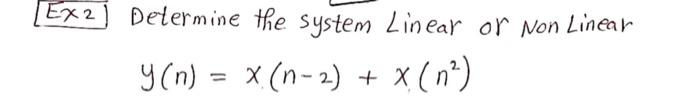 Ex2 Determine the system Linear or Non Linear
y(n) = x(n-2) + x(n²)